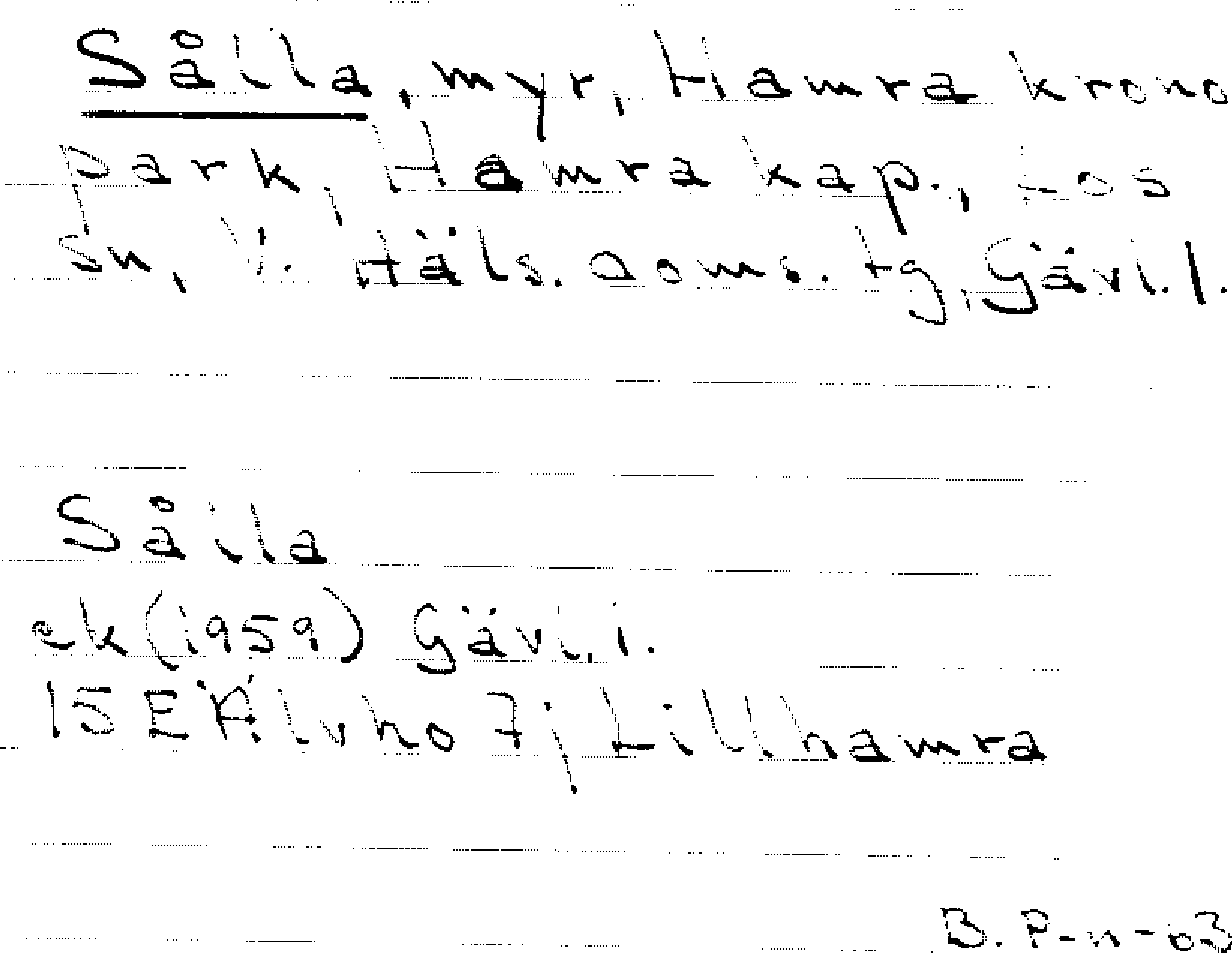 Såila, myr, Hamra krono
park, Hamra kap., Los
sn, V. Häls. doms. tg, Gävl. l.
Såila
ek (1959) Gävl. l.
15 E Älvho 7; Lillhamra
B. P-n-63